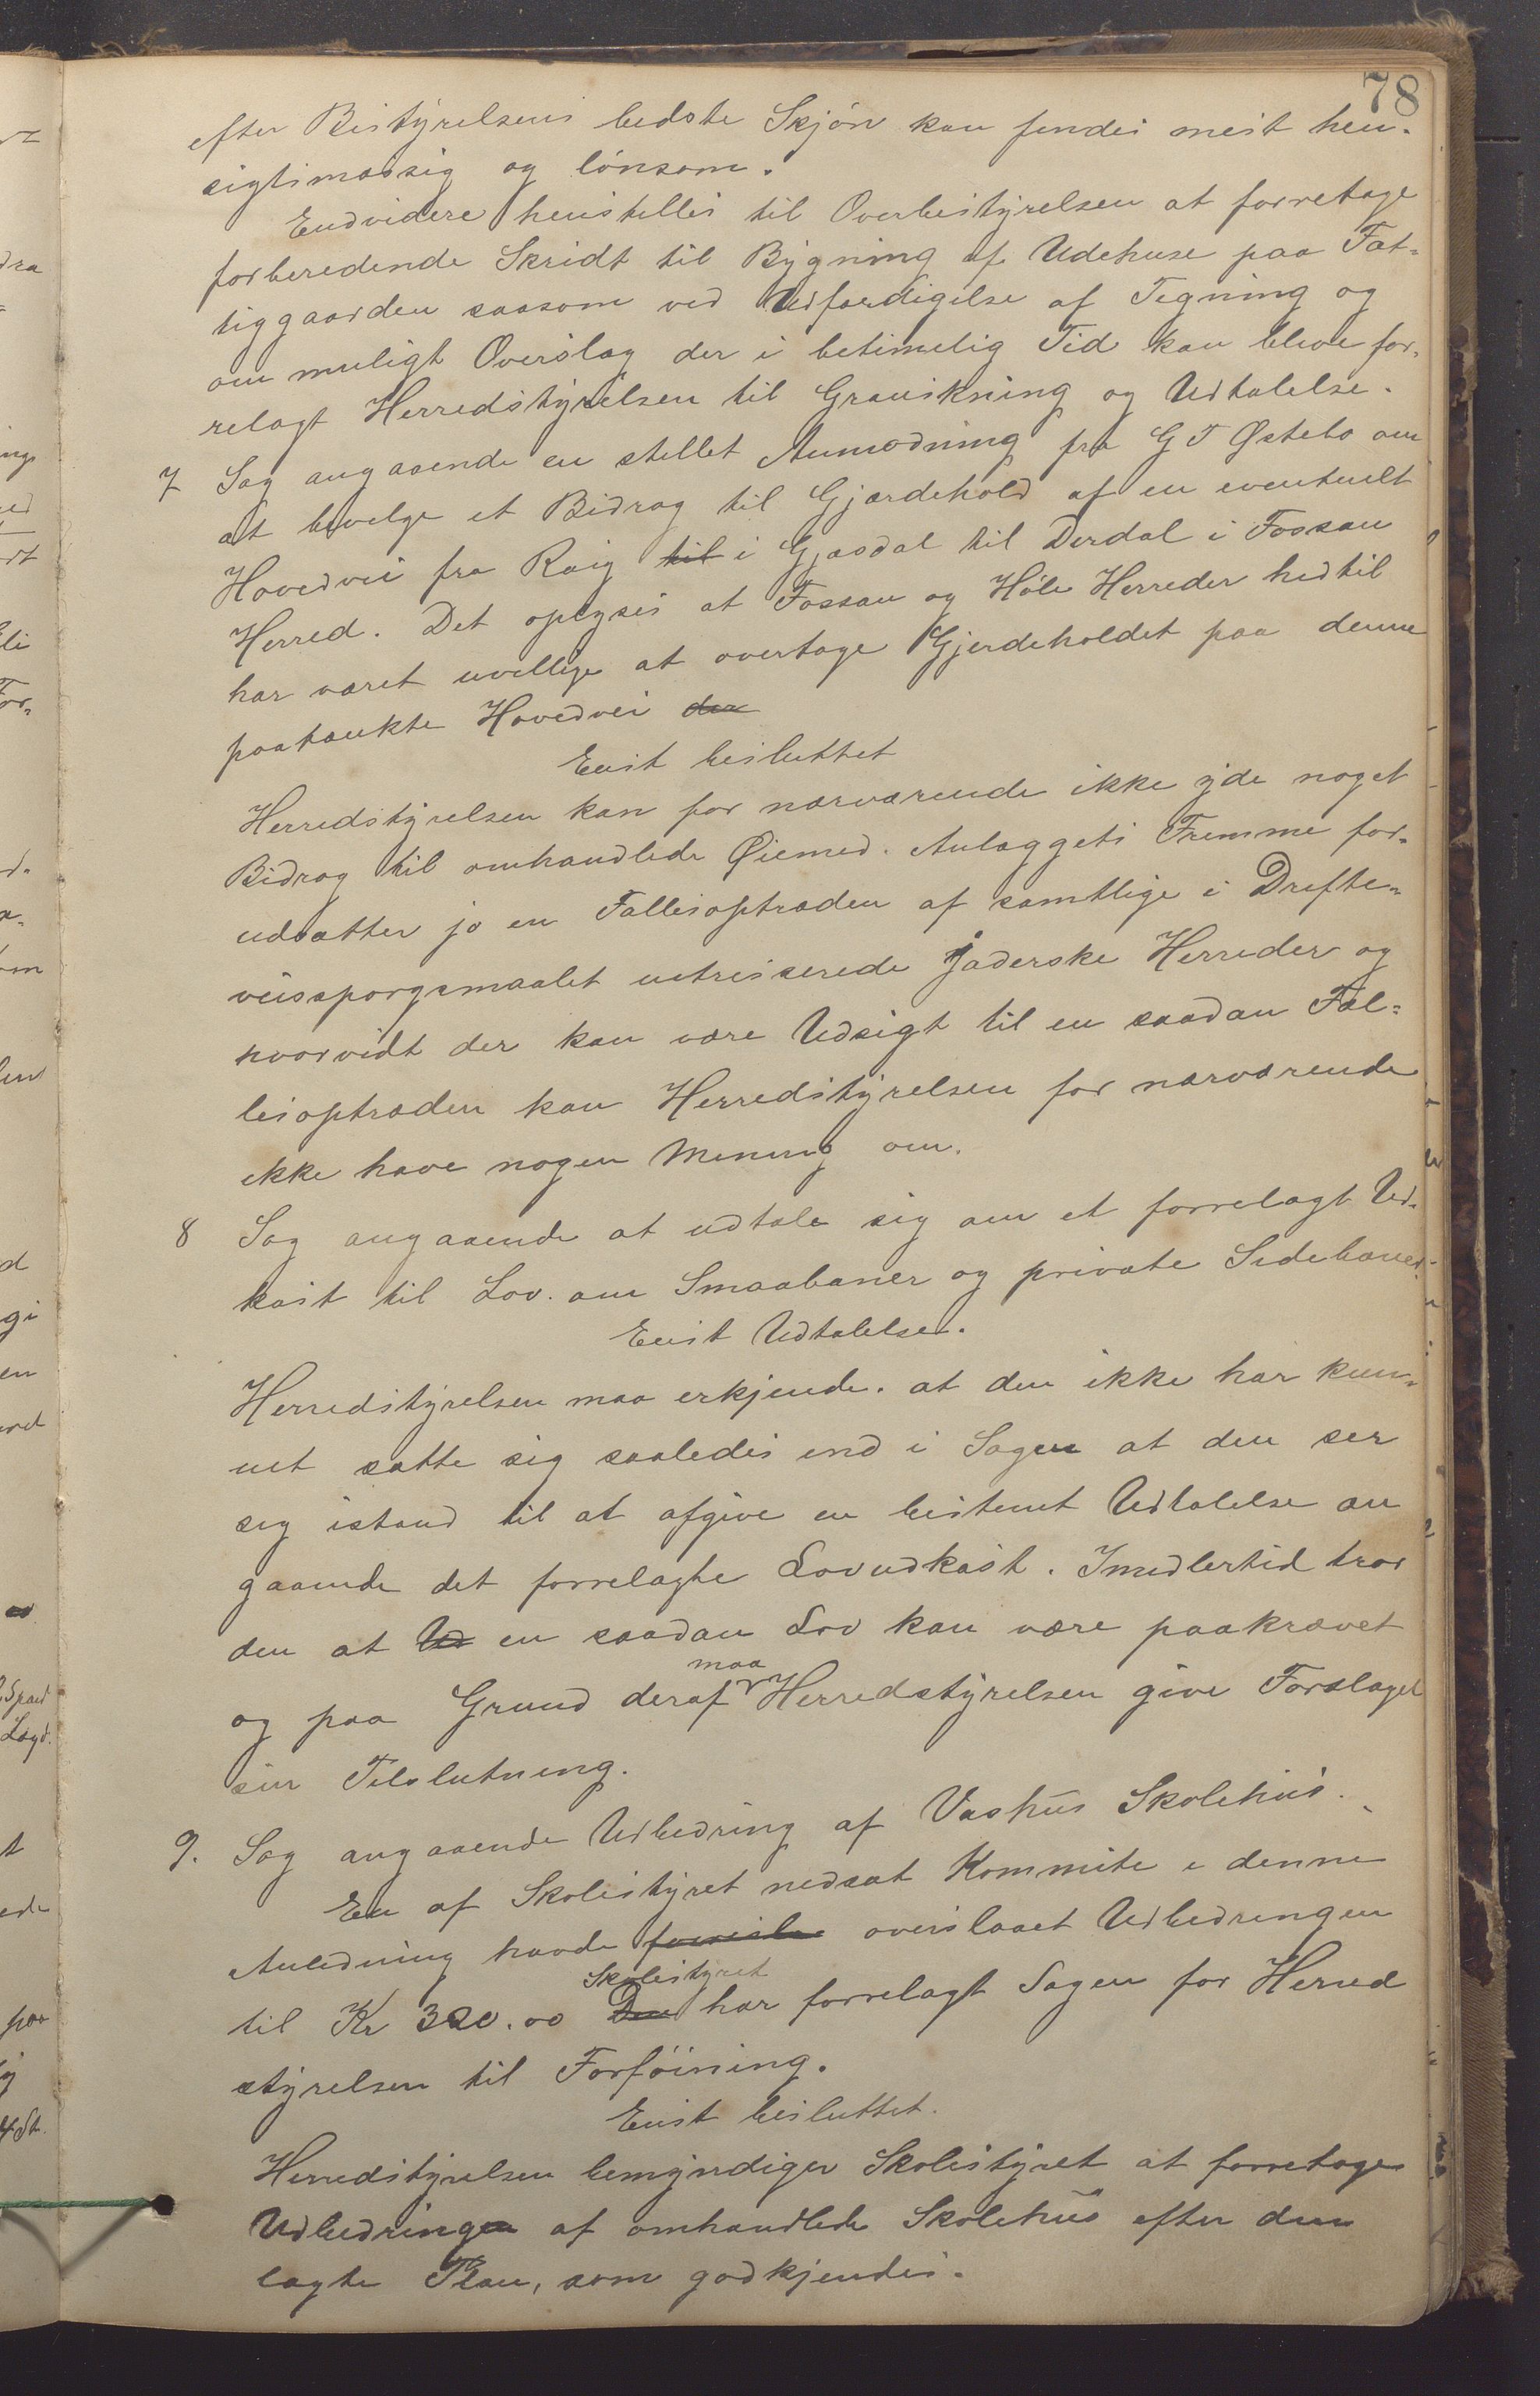 78
efter Bestyrelsens bedste Skjøn kan findes mest hen-
sigtsmæssig og lønsom.
Endvidere henstilles til Overbestyrelsen at forretage
forberedende Skridt til Bygning af Udehuse paa Fat-
tiggaarden saasom ved Udfærdigelse af Tegning og
om muligt Overslag der i betimelig Tid kan blive for-
relagt Herredstyrelsen til Granskning og Udtalelse.
7 Sag angaaende en stillet Anmodning fra G T Østebø om
at bevilge et Bidrag til Gjærdehold af en eventuelt
Hovedvei fra Røig til i Gjæsdal til Dirdal i Fossan
Herred. Det oplyses at Fossan og Høle Herreder hidtil
har været uvillige at overtage Gjerdeholdet paa denne
paatænkte Hovedvei der
Enst besluttet
Herredstyrelsen kan for nærværende ikke yde noget
Bidrag til omhandlede Øiemed. Anlæggets Fremme for-
udsætter jo en Fællesoptræden af samtlige i Drifte-
veisspørgsmaalet intresserede jæderske Herreder og
hvorvidt der kan være Udsigt til en saadan Fæl-
lesoptræden kan Herredstyrelsen for nærværende
ikke have nogen Mening om.
8 Sag angaaende at udtale sig om et forrelagt Ud-
kast til Lov om Smaabaner og private Sidebaner.
Enst Udtalelse.
Herredstyrelsen maa erkjende. at den ikke har kun-
net sætte sig saaledes ind i Sagen at den ser
sig istand til at afgive en bestemt Udtalelse an
gaaende det forrelagte Lovudkast. Imidlertid tror
den at Ud en saadan Lov kan være paakrævet
og paa Grund deraf maa Herredstyrelsen give Forslaget
sin Tilslutning.
9. Sag angaaende Udbedring af Vashus Skolehus.
En af Skolestyret nedsat Kommite i denne
Anledning havde overslaaet Udbedringen
til Kr 320.00 Den Skolestyret har forrelagt Sagen for Herred
styrelsen til Forføining.
Enst besluttet.
Herredstyrelsen bemyndiger Skolestyret at forretage
Udbedringen af omhandlede Skolehus efter den
lagte Plan, som godkjendes.